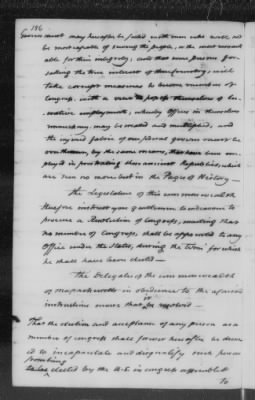 186
Government may hereafter be filled with men who will not
be most capable of serving the people, or the most remark
able for their integrity; and that some persons for-
saking the true interest of their country, will
take corrupt measures to become members of
Congress, with a view to possess themselves of lu-
crative employments, whereby Offices in themselves
unnecessary, may be created and multiplied, and
the injured fabric of our federal government be
overthrown, by the same means, that have been em-
ployed in prostrating those ancient Republics, which
are seen no more but in the Page of History —
The Legislature of this commonwealth
therefore instruct you gentlemen to endeavor to
procure a Resolution of Congress, enacting that
no member of Congress, shall be appointed to any
Office under the States, during the term for which
he shall have been elected —
The Delegates of the commonwealth
of Massachusetts in obedience to the aforesaid
instructions move that it be resolved —
That the election and acceptance of any person as a
member of congress shall forever hereafter be deem
ed to incapacitate and disqualify such person
from being
elected by the U.S. in congress assembled
To